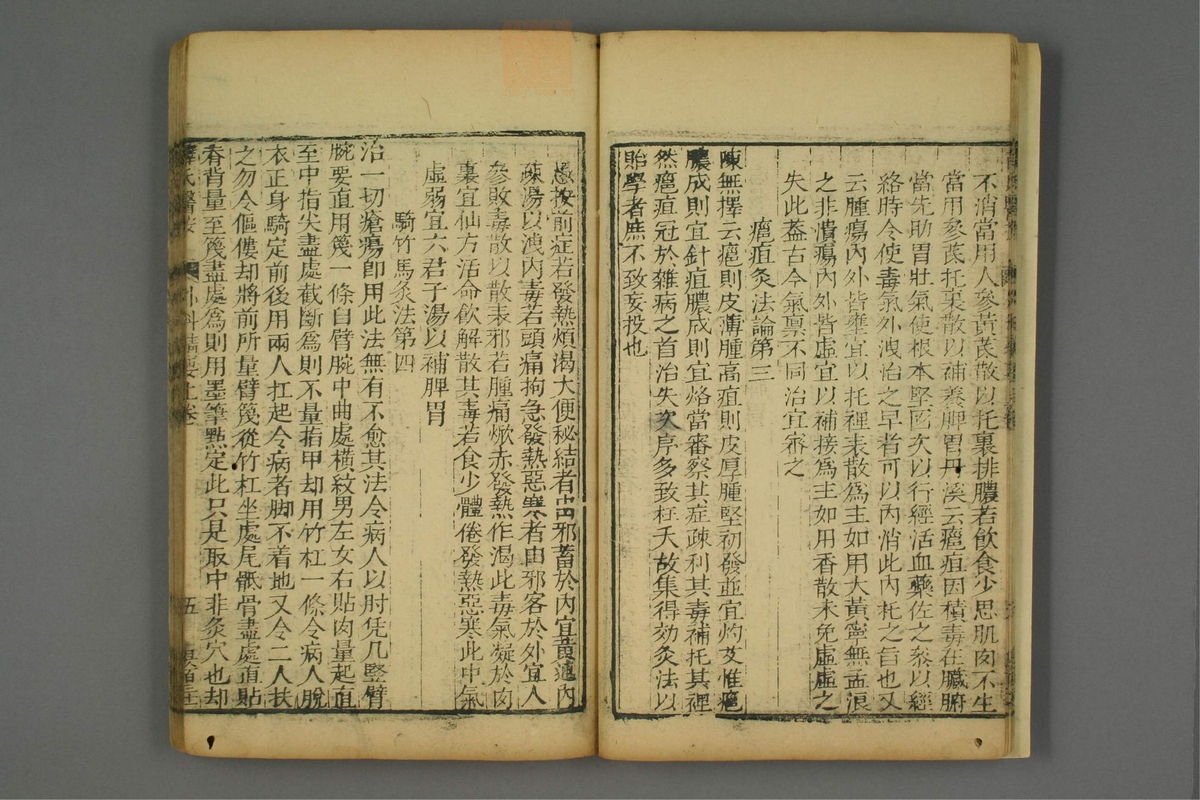 不消當用人參黃芪散以托裏排膿若飲食少思肌肉不生
當用參芪托裏散以補養脾胃丹溪云瘟疽因積毒在臟腑
當先助胃壯氣使根本堅固次以行經活血藥佐之參以經
絡時令使毒氣外洩治之早者可以內消此內托之旨也又
云腫瘍內外皆壅宜以托裡表散為主如用大黃寧無孟浪
之非潰瘍內外皆虛宜以補接為主如用香散未免虛虛之
失此葢古今氣禀不同治宜審之
瘟疽灸法論第三
陳無擇云瘟則皮薄腫高疽則皮厚腫堅初發並宜灼艾惟瘟
膿成則宜針疽膿成則宜烙當審察其症疎利其毒補托其裡
然瘟疽冠於雜病之首治失次序多致枉夭故集得効灸法以
貽學者庶不致妄投也
愚按前症若發熱煩渴大便秘結者由邪蓄於內宜黃連內
疎湯以瀉內毒若頭痛拘急發熱惡寒者由邪客於外宜人
參敗毒散以散表邪若腫痛焮赤發熱作渴此毒氣凝於肉
裏宜仙方活命飲解散其毒若食少體倦發熱惡寒此中氣
虛弱宜六君子湯以補脾胃
騎竹馬灸法第四
治一切瘡瘍卽用此法無有不愈其法令病人以肘凭几竪臂
腕要直用篾一條自臂腕中曲處橫紋男左女右貼肉量起直
至中指尖盡處截斷爲則不量指甲却用竹杠一條令病人脫
衣正身騎定前後用兩人扛起令病者脚不着地又令二人扶
之勿令傴僂却將前所量臂篾從竹杠坐處尾骶骨盡處直貼
脊背量至篾盡處爲則用墨筆㸃定此只是取中非灸穴也却
薛氏醫案 外科精要上卷 五